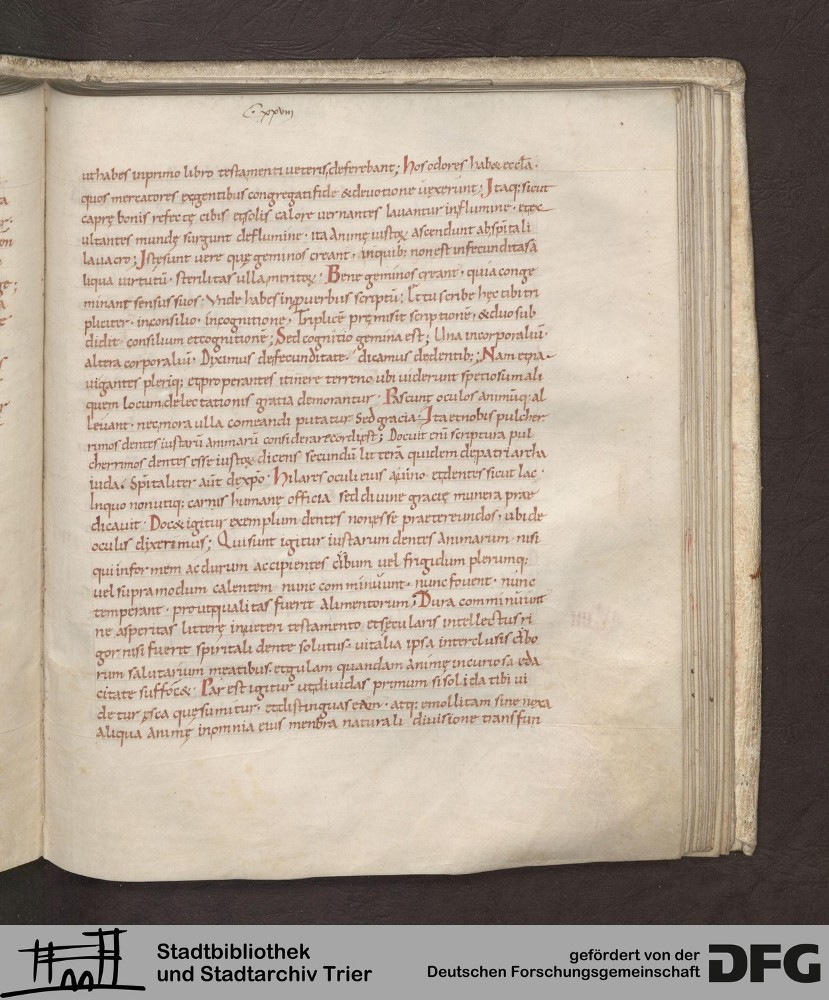 C·xxviii
ut habes in primo libro testamenti ueteris, deferebant; hos odores hab& eccła·
quos mercatores ex gentibus congregati fide & deuotione uexerunt; Itaq; sicut
caprę bonis refectę cibis et solis calore uernantes lauantur in flumine· et ex
ultantes mundę surgunt de flumine· ita animę iustorum ascendunt ab spiritali
lauacro; Istę sunt uere quę geminos creant· inquib; non est infecunditas a
liqua uirtutū· sterilitas ulla meritorum· Bene geminos creant· quia conge
minant sensus suos· Vnde habes in prouerbus scriptū; Et tu scribe hęc tibi tri
pliciter· in consilio· in cognitione· Triplicē pręmisit scriptionē, & duo sub
didit· consilium et cognitionē; Sed cognitio gemina est; Una incorporaliū·
altera corporaliū· Diximus de fecunditate· dicamus de dentib;; Nam et na
uigantes pleriq; et properantes itinere terreno ubi uiderunt speciosum ali
quem locum delectationis gratia demorantur· Pascunt oculos animūq; al
leuant· nec mora ulla comeandi putatur sed gracia· Ita et nobis pulcher
rimos dentes iustarū animarū considerare cordi est; Docuit enī scriptura pul
cherrimos dentes esse iustorum dicens secundū litterā quidem de patriarcha
iuda· Spiritaliter aūt de xpo· hilares oculi eius a uino et dentes sicut lac·
In quo non utiq; carnis humanę officia sed diuinę gracię munera prae
dicauit· Doc& igitur exemplum dentes non esse praetereundos· ubi de
oculis dixerimus; Qui sunt igitur iustarum dentes animarum· nisi
qui informem ac durum accipientes cibum uel frigidum plerumq;
uel supra modum calentem nunc comminuunt· nunc fouent· nunc
temperant· prout qualitas fuerit alimentorum; Dura comminuunt
ne asperitas litterę in ueteri testamento et secularis intellectus ri
gor nisi fuerit spiritali dente solutus· uitalia ipsa interclusis cibo
rum salutarium meatibus· et gulam quandam animę incuriosa eda
citate suffoc&· Par est igitur ut diuidas primum si solida tibi ui
detur ęsca quę sumitur· et distinguas eam· atq; emollitam sine noxa
aliqua animę in omnia eius menbra naturali diuisione transfun
Stadtbibliothek
und Stadtarchiv Trier
gefördert von der
Deutschen Forschungsgemeinschaft
DFG